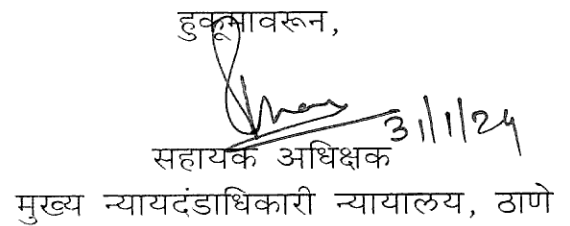 हुकूमावरून,
31/1/24
सहायक अधिक्षक
मुख्य न्यायदंडाधिकारी न्यायालय, ठाणे